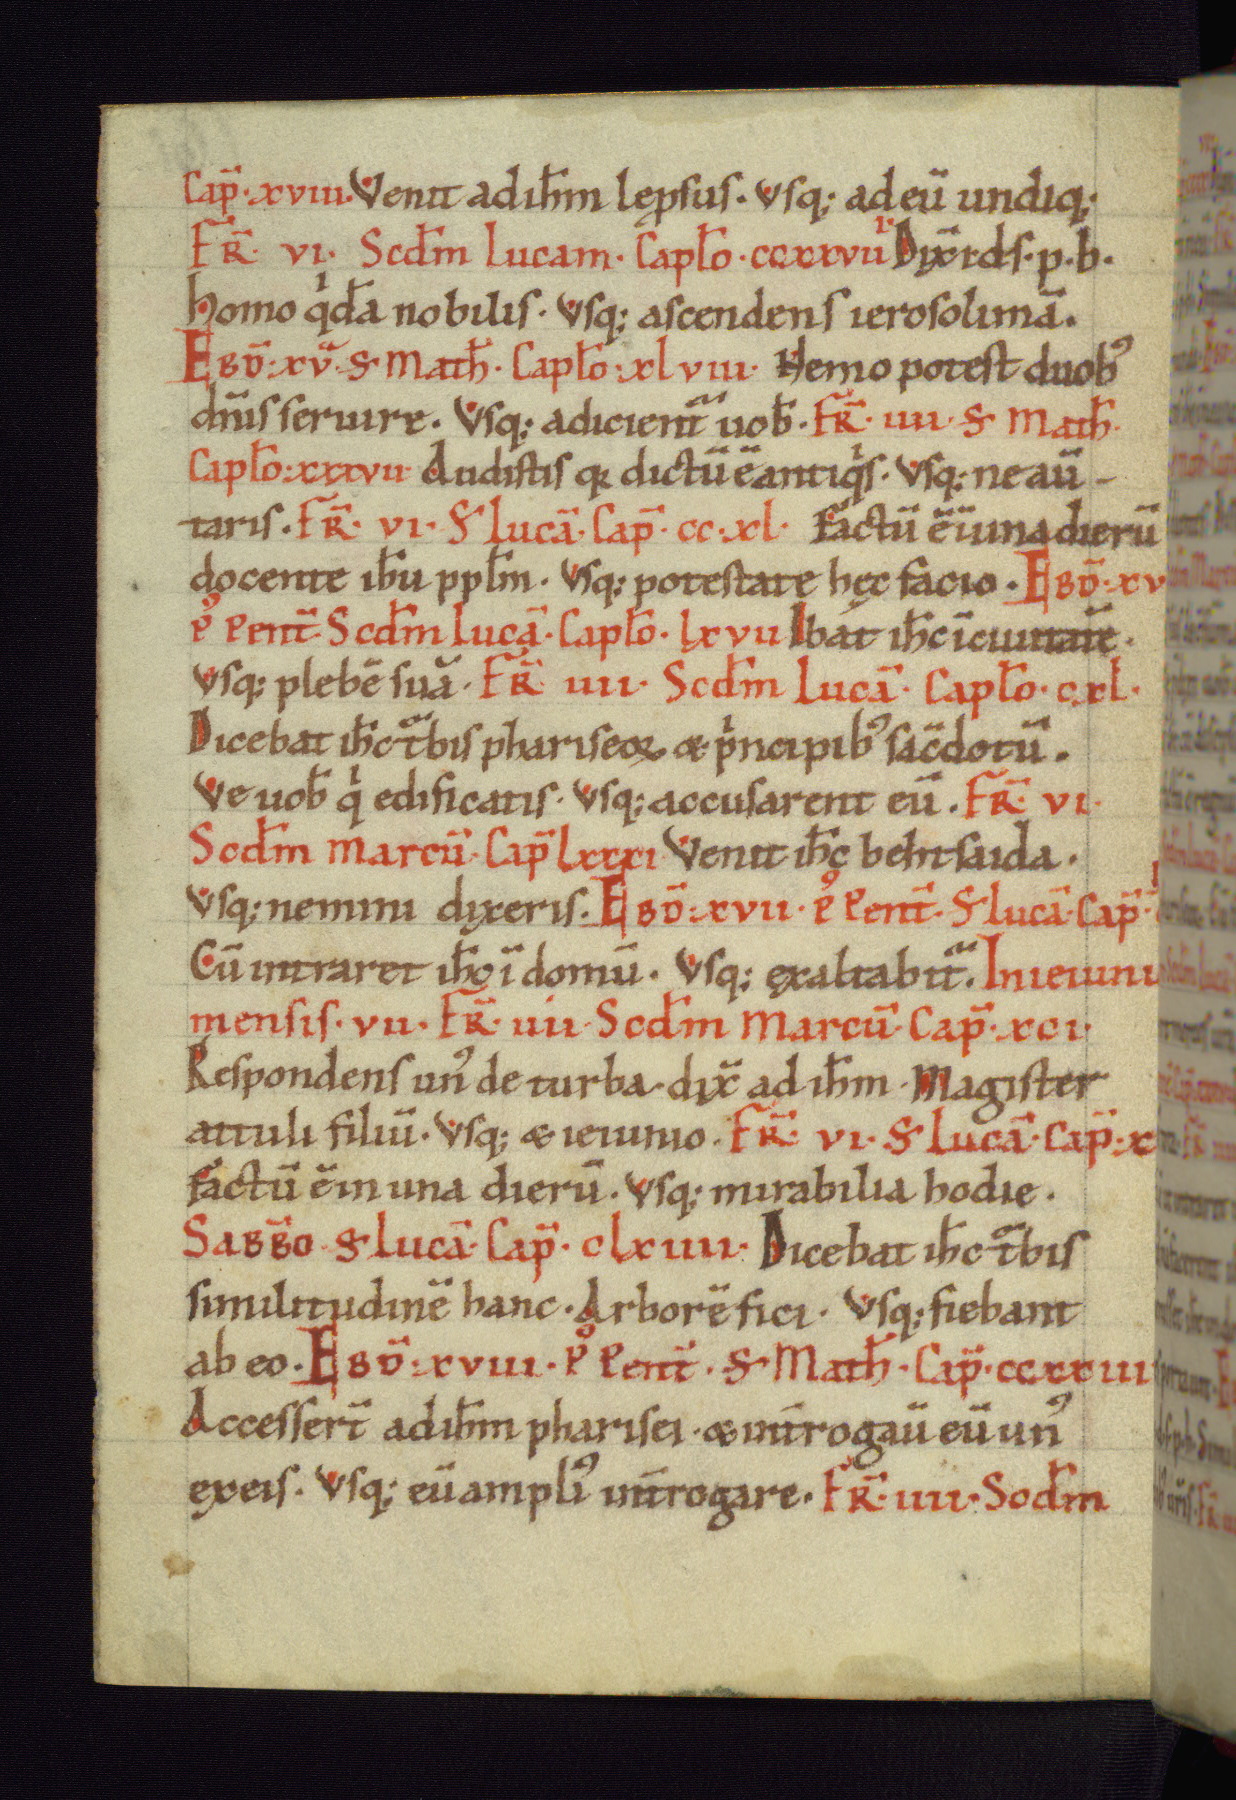 Cap̄· xviii· Venit ad ih̄m lep̱sus· Vsq; ad eū undiq;·
FR̄· vi· Scd̄m lucam· Capl̄o· ccxxvii Dix̄ ds̄· p· b·
homo qd̄a nobilis· Vsq; ascendens ierosolimā.
Ebd̄· xv· S· Math̄· Capl̄o· xlviii· Nemo potest duob᾽
dn̄is seruire. Vsq; adicient̄ uob̄· FR̄· iiii· S· Math̄·
Capl̄o· xxxvii· Audistis qꝛ dictū ē antiqs· Vsq; ne aū-
taris. FR̄· vi· S· lucā· Cap̄· cc·xl· Factū ē ī una dierū
docente ih̄u ppl̄m· Vsq; potestate hęc facio· Ebd̄· xv
p᾽ Pent̄· Scd̄m lucā· Capl̄o· lxvii Ibat ih̄c ī ciuitatē·
Vsq; plebē suā· FR̄· iiii· Scd̄m lucā· Capl̄o· cxl·
Dicebat ih̄c t̄bis phariseoꝝ & pncipib᾽ sac̄dotū.
Ve uob̄ q edificatis· Vsq; accusarent eū. FR̄· vi·
Scd̄m marcū· Cap̄ lxxxi Venit ih̄c behtsaida·
Vsq; nemini dixeris. Ebd̄· xvii· p᾽ Pent̄· S· lucā· Cap̄·
Cū intraret ih̄c ī domū· Vsq; exaltabit̄. In ieiuni
mensis· vii· FR̄· iiii· Scd̄m marcū· Cap̄· xci·
Respondens un᾽ de turba· dix̄ ad ih̄m· Magister
attuli filiū· Vsq; & ieiunio. FR̄· vi· S· lucā· Cap̄· x
Factū ē in una dierū· Vsq; mirabilia hodie.
Sabb̄o· S· lucā· Cap̄· clxiiii· Dicebat ih̄c t̄bis
similitudinē hanc· Arborē fici· Vsq; fiebant
ab eo· Ebd̄· xviii· p᾽ Pent̄· S· Math̄· Cap̄· ccxxiii
Accessert̄ ad ih̄m pharisei· & int̄rogaū eū un᾽
ex eis· Vsq; eū ampli᾽ int̄rogare· FR̄· iiii· Scd̄m